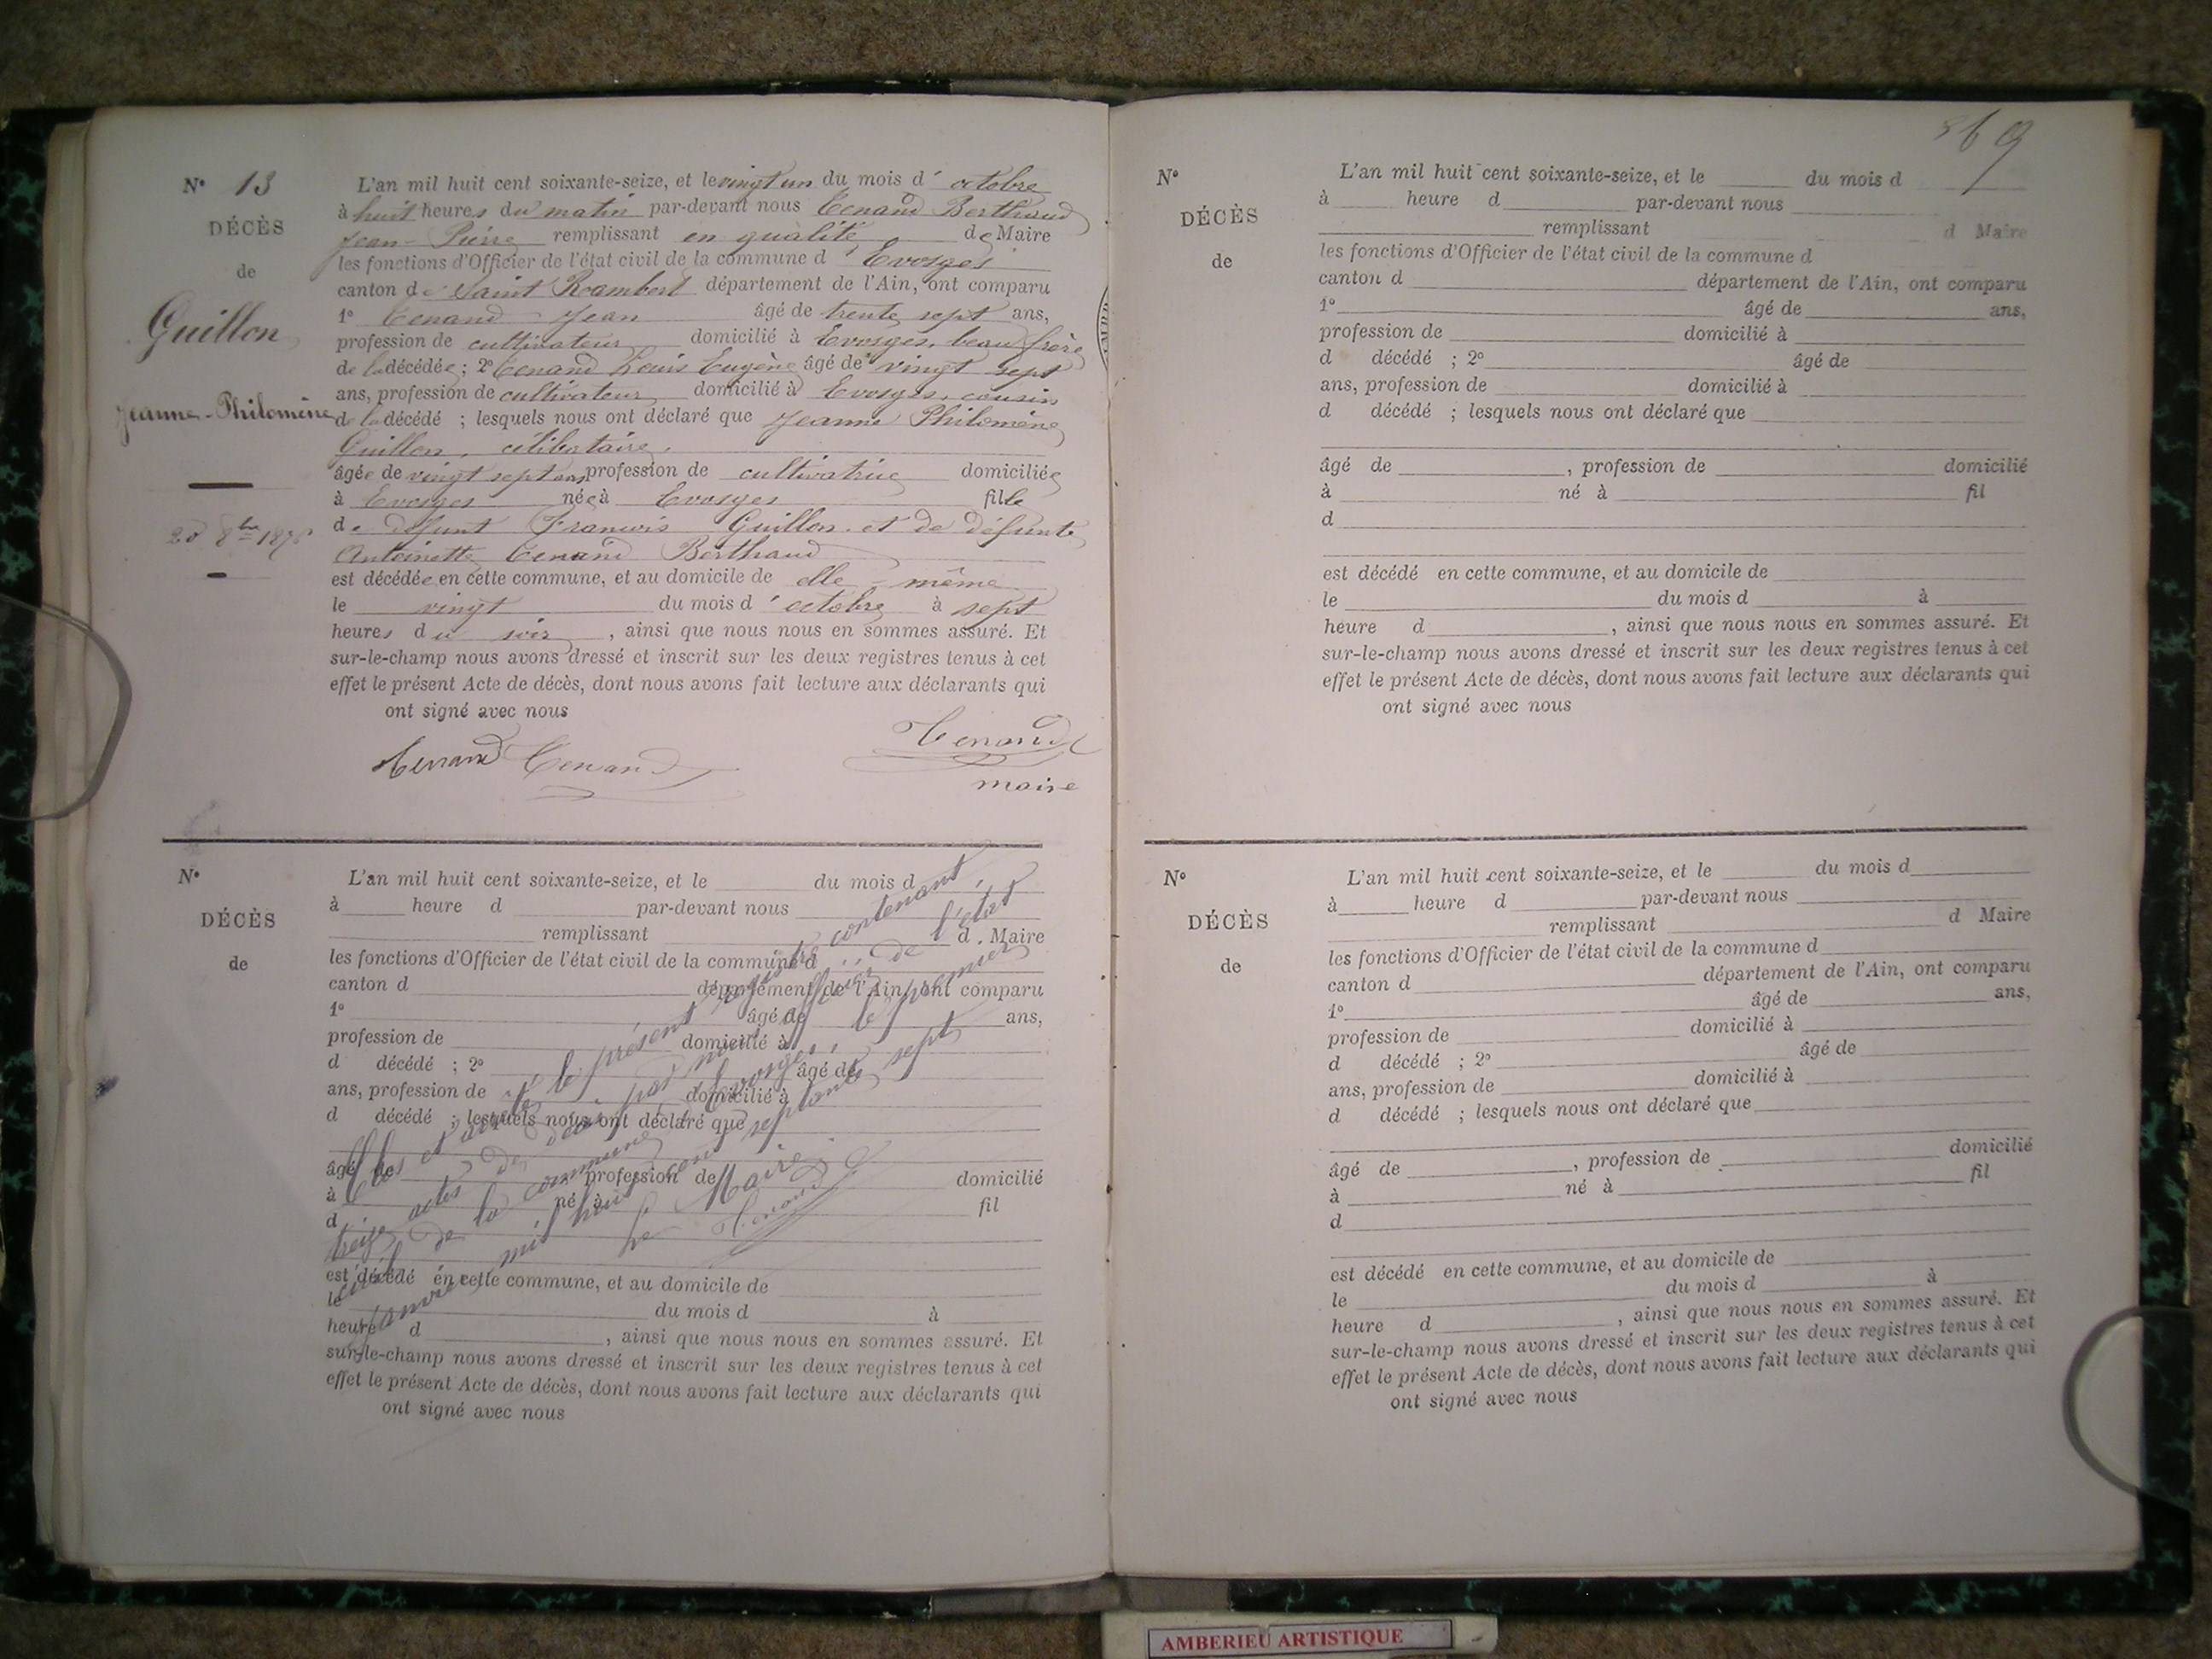 N° 13
DÉCÈS
de
Guillon
Jeanne-Philomène
20 8bre 1876
L'an mil huit cent soixante-seize, et le vingt un du mois d' octobre
à huit heures du matin par-devant nous Tenand Berthaud
Jean-Pierre remplissant en qualité de Maire
les fonctions d'Officier de l'état civil de la commune d' Evosges
canton de Saint Rambert département de l'Ain, ont comparu
1° Tenand Jean âgé de trente sept ans,
profession de cultivateur domicilié à Evosges, beau frère
de la décédée ; 2° Tenand Louis Eugène âgé de vingt sept
ans, profession de cultivateur domicilié à Evosges, cousin
de la décédé ; lesquels nous ont déclaré que Jeanne Philomène
Guillon, célibataire,
âgée de vingt sept ans, profession de cultivatrice domiciliée
à Evosges née à Evosges fille
de défunt François Guillon et de défunte
Antoinette Tenand Berthaud
est décédée en cette commune, et au domicile de elle-même
le vingt du mois d' octobre à sept
heures du soir, ainsi que nous nous en sommes assuré. Et
sur-le-champ nous avons dressé et inscrit sur les deux registres tenus à cet
effet le présent Acte de décès, dont nous avons fait lecture aux déclarants qui
ont signé avec nous
Tenand Tenand Tenand
maire
N°
DÉCÈS
de
L'an mil huit cent soixante-seize, et le du mois d
à heure d par-devant nous
remplissant d Maire
les fonctions d'Officier de l'état civil de la commune d
canton d département de l'Ain, ont comparu
1° âgé de ans,
profession de domicilié à
d décédé ; 2° âgé de
ans, profession de domicilié à
d décédé ; lesquels nous ont déclaré que
âgé de profession de domicilié
à né à fil
d
est décédé en cette commune, et au domicile de
le du mois d à
heure d , ainsi que nous nous en sommes assuré. Et
sur-le-champ nous avons dressé et inscrit sur les deux registres tenus à cet
effet le présent Acte de décès, dont nous avons fait lecture aux déclarants qui
ont signé avec nous
Clos et arrêté le présent registre contenant
treize actes de décès par nous officier de l'état
civil de la commune d'Evosges, le premier
janvier mil huit cent septante sept
Le Maire
Tenand
69
N°
DÉCÈS
de
L'an mil huit cent soixante-seize, et le du mois d
à heure d par-devant nous
remplissant d Maire
les fonctions d'Officier de l'état civil de la commune d
canton d département de l'Ain, ont comparu
1° âgé de ans,
profession de domicilié à
d décédé ; 2° âgé de
ans, profession de domicilié à
d décédé ; lesquels nous ont déclaré que
âgé de , profession de domicilié
à né à fil
d
est décédé en cette commune, et au domicile de
le du mois d à
heure d , ainsi que nous nous en sommes assuré. Et
sur-le-champ nous avons dressé et inscrit sur les deux registres tenus à cet
effet le présent Acte de décès, dont nous avons fait lecture aux déclarants qui
ont signé avec nous
N°
DÉCÈS
de
L'an mil huit cent soixante-seize, et le du mois d
à heure d par-devant nous
remplissant d Maire
les fonctions d'Officier de l'état civil de la commune d
canton d département de l'Ain, ont comparu
1° âgé de ans,
profession de domicilié à
d décédé ; 2° âgé de
ans, profession de domicilié à
d décédé ; lesquels nous ont déclaré que
âgé de , profession de domicilié
à né à fil
d
est décédé en cette commune, et au domicile de
le du mois d à
heure d , ainsi que nous nous en sommes assuré. Et
sur-le-champ nous avons dressé et inscrit sur les deux registres tenus à cet
effet le présent Acte de décès, dont nous avons fait lecture aux déclarants qui
ont signé avec nous
AMBERIEU ARTISTIQUE